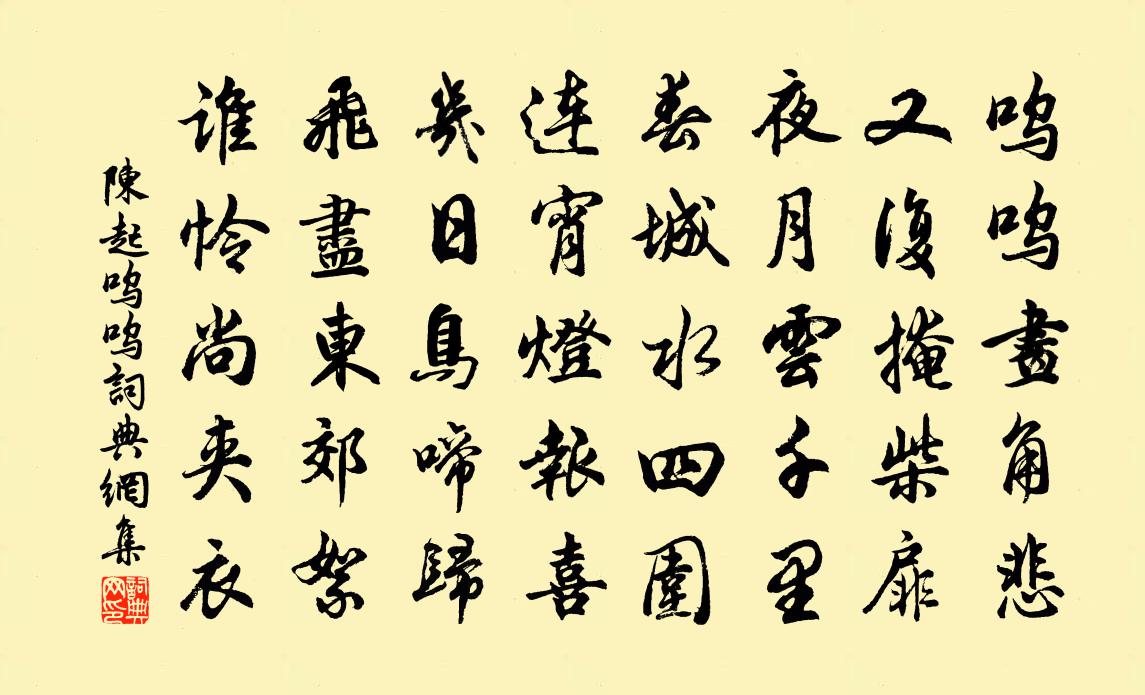 嗚嗚畫角悲
又復掩柴扉
夜月雲千里
春城水四圍
連宵燈報喜
幾日鳥啼歸
飛盡東郊絮
誰憐尚夾衣
陳起嗚嗚詞典網集
詞典網印